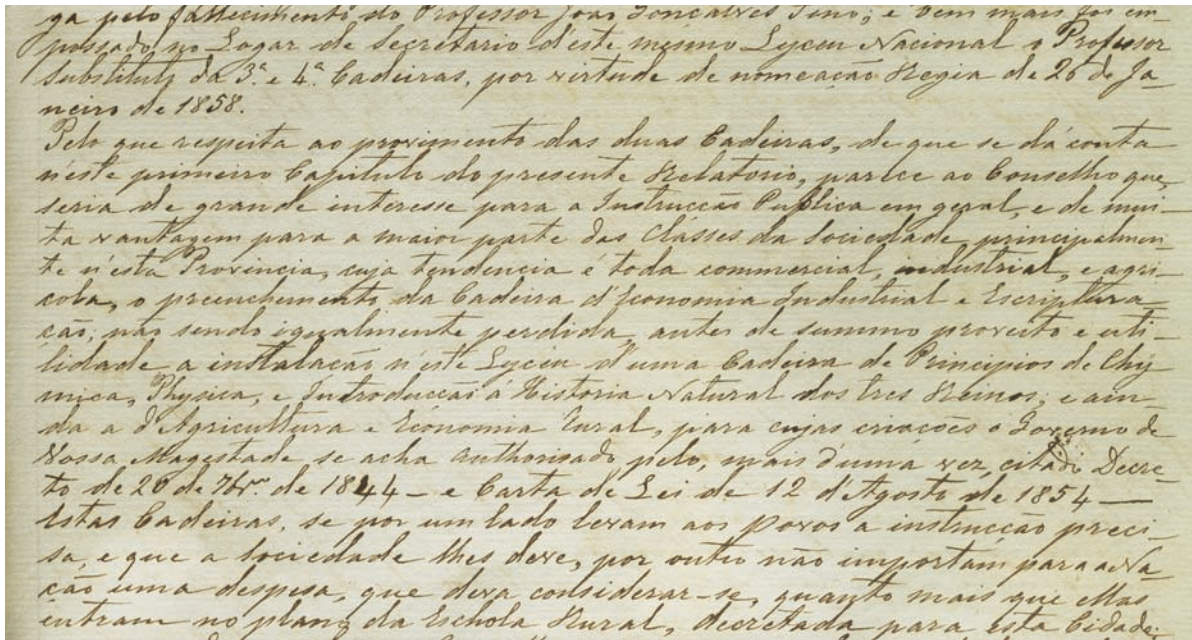 ga pelo fallecimento do Professor João Goncalves; e bem mais foi em-
possado, no Logar de Secretario d'este mesmo Lyceu Nacional o Professor
Substituto da 3ª e 4ª Cadeiras, por virtude de nomeação Regia de 26 de Ja-
neiro de 1858.
Pelo que respeita ao provimento das duas Cadeiras, de que se dá conta
n'este primeiro Capitulo do presente Relatorio, parece ao Conselho que,
seria de grande interesse para a Instrucção Publica em geral, e de mui-
ta vantagem para a maior parte das Classes da Sociedade, principalmen
te n'esta Provincia, cuja tendencia é toda commercial, industrial, e agri-
cola, o preenchimento da Cadeira d'Economia Industrial e Escriptura-
ção; não sendo igualmente perdida, antes de summo proveito e uti-
lidade a instalação n'este Lyceu d'uma Cadeira de Principios de Chy
mica, Physica, e Introducção á Historia Natural dos tres Reinos, e ain-
da a d'Agricultura e Economia Rural, para cujas criações o Governo de
Vossa Magestade se acha authorisado pelo, mais d'uma vez, citado Decre-
to de 20 de 7br.º de 1844 - e Carta de Lei de 12 d'Agosto de 1854 —
Estas Cadeiras, se por um lado levam aos povos a instrucção preci-
sa, e que a Sociedade lhes deve, por outro não importam para a Na-
ção uma despesa, que deva considerar-se, quanto mais que ellas
entram no plano da Eschola Rural, decretada para esta Cidade.